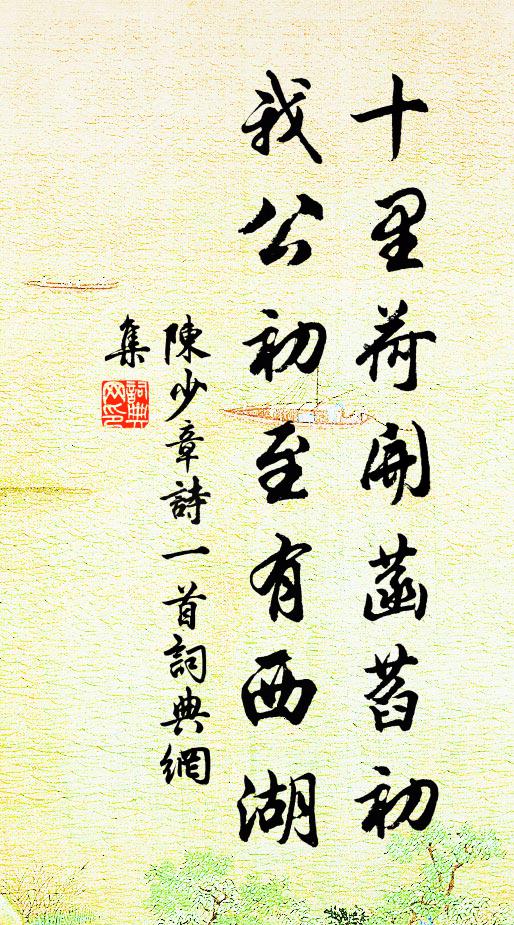 十里荷開菡萏初
我公初至有西湖
陳少章詩一首詞典網
集
詞典網印